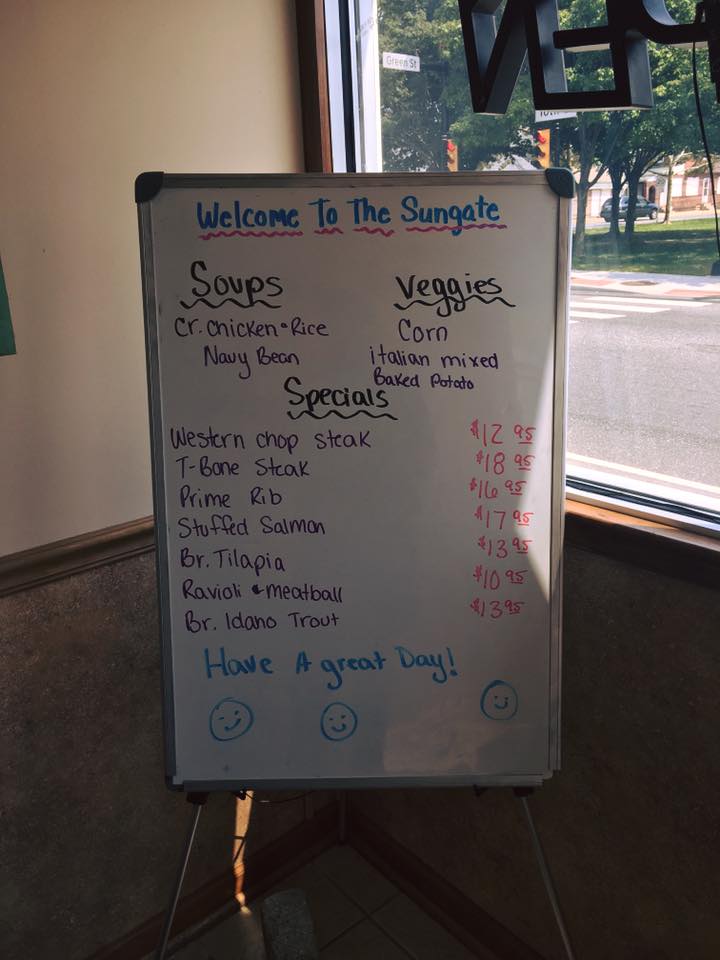 Green St
Welcome To The Sungate
Soups
Cr. Chicken-Rice
Navy Bean
Veggies
Corn
italian mixed
Baked Potato
Specials
Western chop steak $12 95
T-Bone Steak $18 95
Prime Rib $16 95
Stuffed Salmon $17 95
Br. Tilapia $13 95
Ravioli & meatball $10 95
Br. Idaho Trout $13 95
Have A great Day!